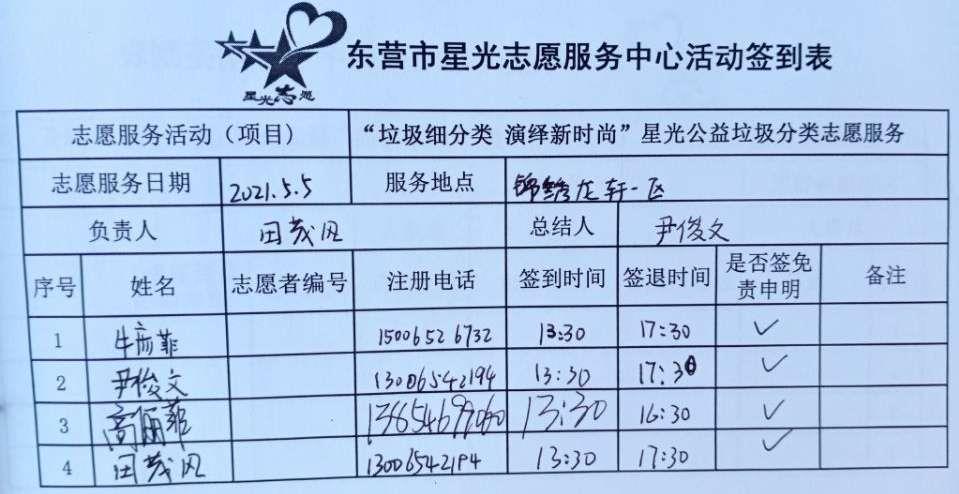 东营市星光志愿服务中心活动签到表
星光志愿
志愿服务活动（项目） “垃圾细分类 演绎新时尚”星光公益垃圾分类志愿服务
志愿服务日期 2021.5.5 服务地点 锦绣龙轩一区
负责人 田茂凤 总结人 尹俊文
序号 姓名 志愿者编号 注册电话 签到时间 签退时间 是否签免责申明 备注
1 牛彦菲 15006526732 13:30 17:30 ✓
2 尹俊文 13006542194 13:30 17:30 ✓
3 高丽菲 13:30 16:30 ✓
4 田茂凤 13006542194 13:30 17:30 ✓